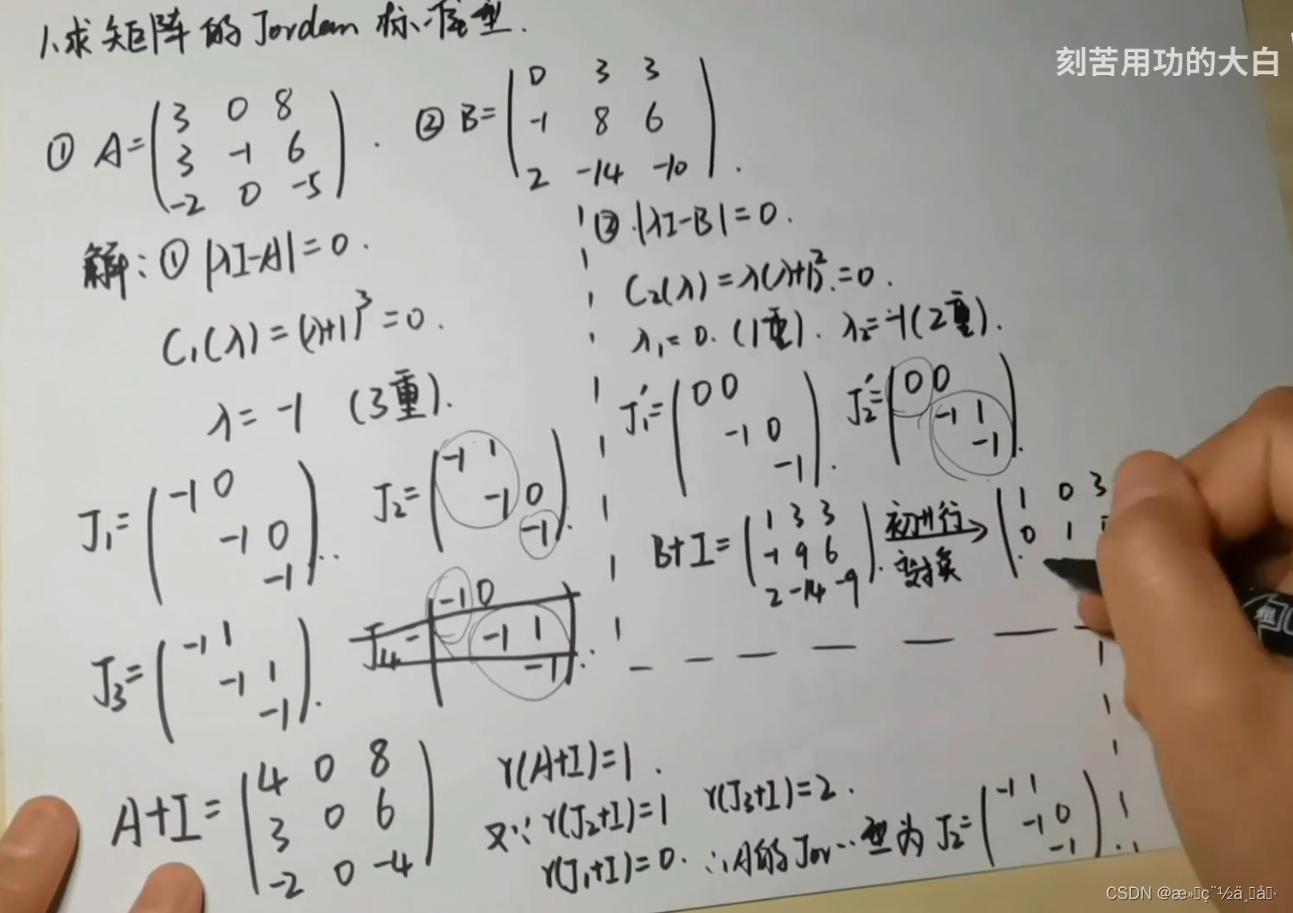 1.求矩阵的Jordan标准型.
刻苦用功的大白
① A=
3 0 8
3 -1 6
-2 0 -5
② B=
0 3 3
-1 8 6
2 -14 -10
解: ① |λI-A|=0.
C₁(λ)=(λ+1)³=0.
λ=-1 (3重).
J₁=
-1 0
-1 0
-1
J₂=
-1 1
-1 0
-1
J₃=
-1 1
-1 1
-1
J₄=
-1 0
-1 1
-1
A+I=
4 0 8
3 0 6
-2 0 -4
r(A+I)=1.
又∵ r(J₂+I)=1 r(J₃+I)=2.
r(J₁+I)=0. ∴A的Jor…型为 J₂=
-1 1
-1 0
-1
② |λI-B|=0.
C₂(λ)=λ(λ+1)²=0.
λ₁=0. (1重). λ₂=-1(2重).
J₁'=
0 0
-1 0
-1
J₂'=
0 0
-1 1
-1
B+I=
1 3 3
-1 9 6
2 -14 -9
初进行
变换
1 0 3
0 1
CSDN